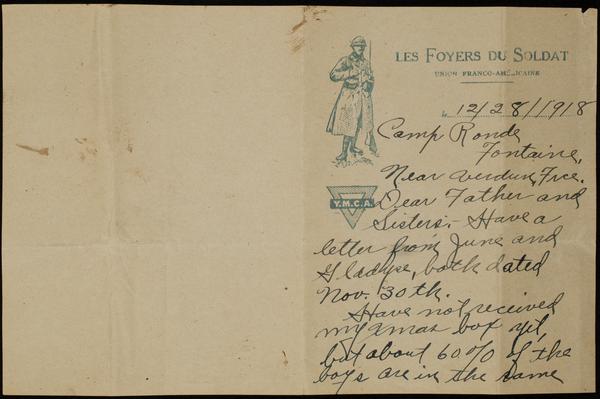 LES FOYERS DU SOLDAT
UNION FRANCO-AMÉRICAINE
le 12/28/1918
Camp Ronde
Fontaine,
Near Verdun, Fce.
Y.M.C.A.
Dear Father and
Sisters:- Have a
letter from June and
Gladyse, both dated
Nov. 30th.
Have not received
my xmas box yet,
but about 60% of the
boys are in the same